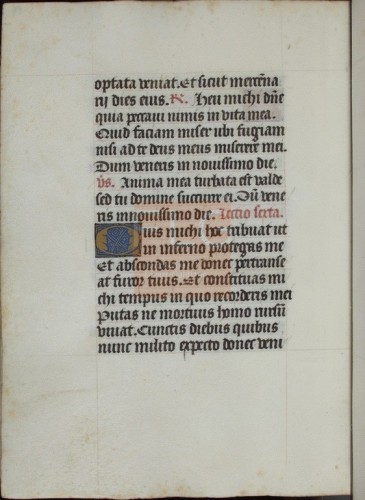 optata veniat. Et sicut mercena
rij dies eius. R. Heu michi dne
quia peccavi nimis in vita mea.
Quid faciam miser ubi fugiam
nisi ad te deus meus miserere mei.
Dum veneris in novissimo die.
vs. Anima mea turbata est valde
sed tu domine succurre ei. Dū vene
ris in novissimo die. Lectio sexta.
Quis michi hoc tribuat ut
in inferno protegas me
Et abscondas me donec pertranse
at furor tuus. Et constituas mi
chi tempus in quo recorderis mei
Putas ne mortuus homo rursū
vivat. Cunctis diebus quibus
nunc milito expecto donec veni